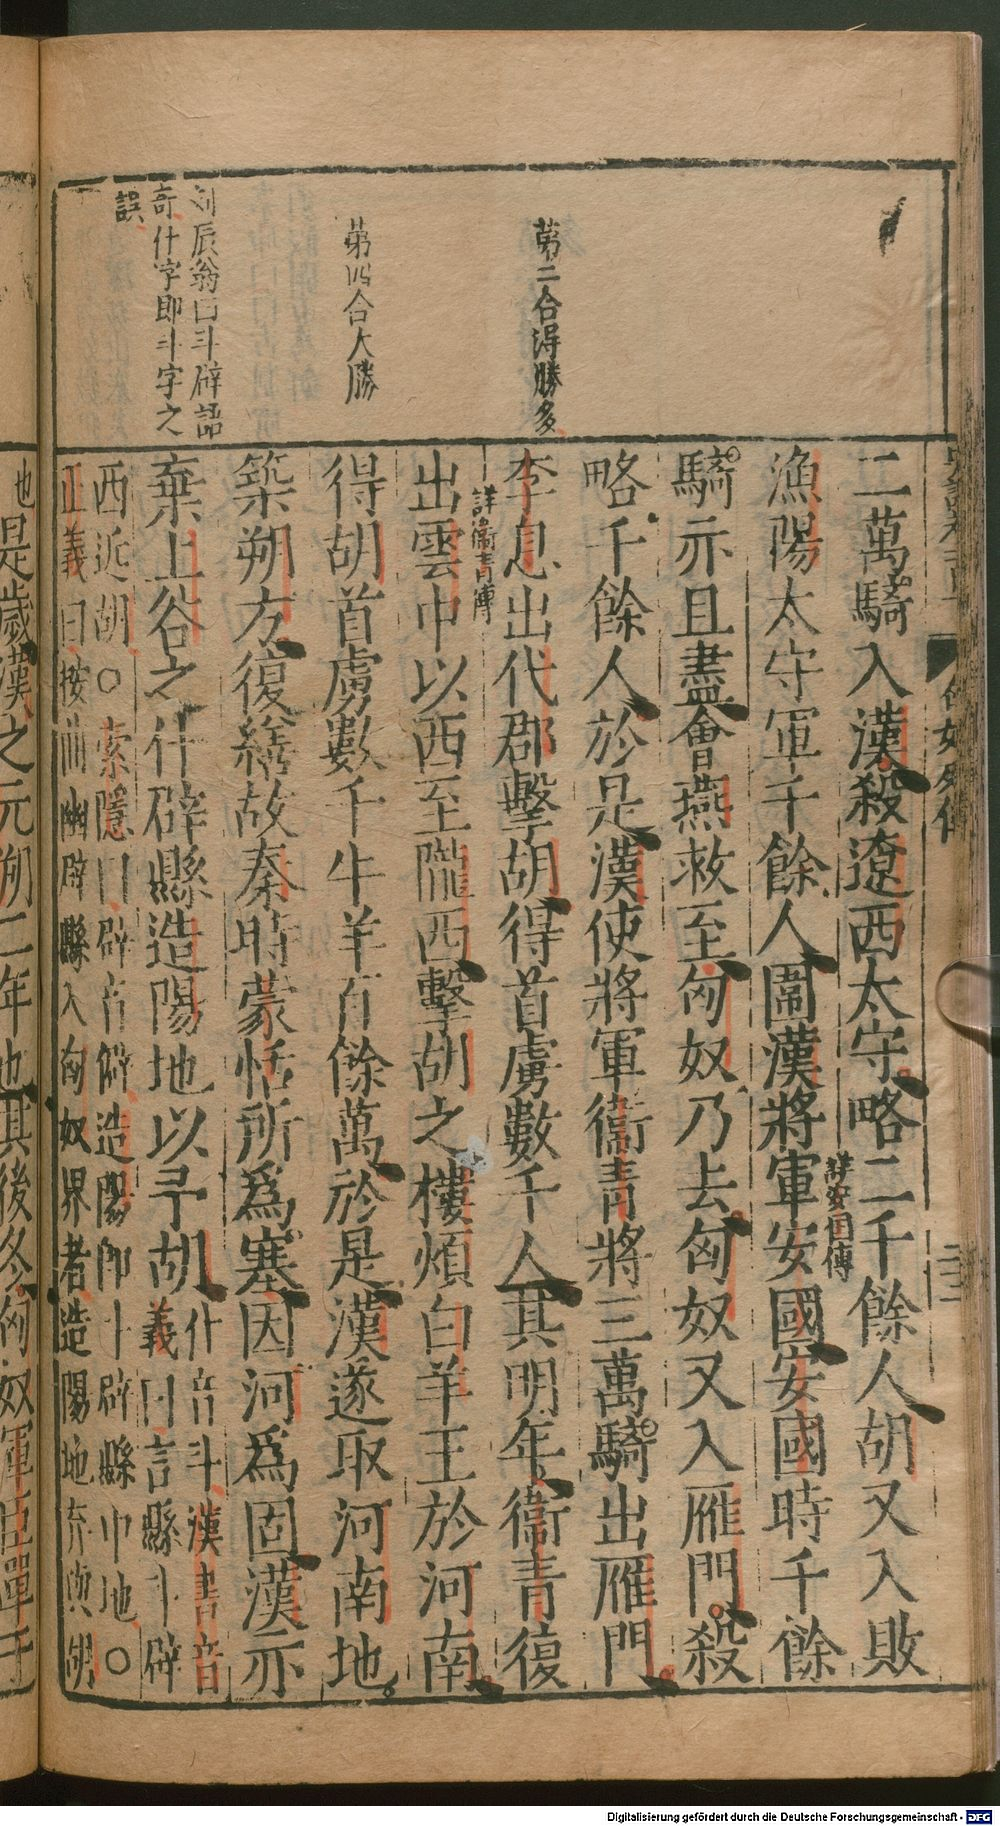 第二合得勝多
第四合大勝
劉辰翁曰斗辟語
奇什字即斗字之
誤
匈奴列傳
二萬騎入漢殺遼西太守略二千餘人胡又入敗
漁陽太守軍千餘人圍漢將軍安國安國時千餘
詳安國傳
騎亦且盡會燕救至匈奴乃去匈奴又入雁門殺
略千餘人於是漢使將軍衞青將三萬騎出雁門
李息出代郡擊胡得首虜數千人其明年衞青復
詳衞青傳
出雲中以西至隴西擊胡之樓煩白羊王於河南
得胡首虜數千牛羊百餘萬於是漢遂取河南地
築朔方復繕故秦時蒙恬所爲塞因河爲固漢亦
棄上谷之什辟縣造陽地以予胡
什音斗漢書音
義曰言縣斗辟
西近胡○索隱曰辟音僻造陽即斗辟縣中地○
正義曰按曲幽辟縣入匈奴界者造陽地弃與胡
也是歲漢之元朔二年也其後冬匈奴軍臣單于
Digitalisierung gefördert durch die Deutsche Forschungsgemeinschaft - DFG